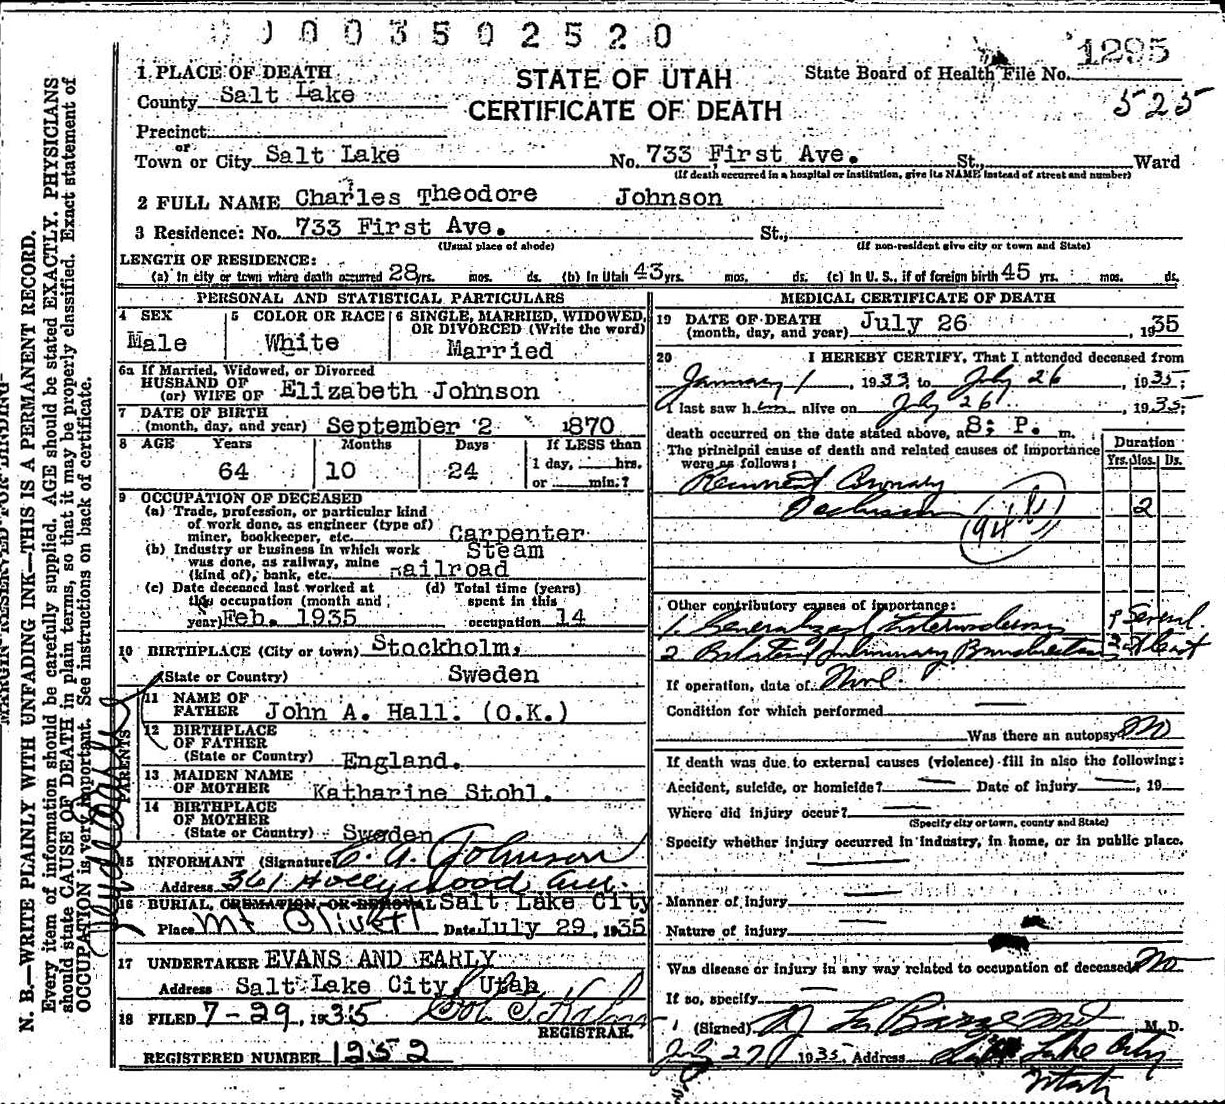 0003502520
1295
525
STATE OF UTAH
CERTIFICATE OF DEATH
State Board of Health File No.
1 PLACE OF DEATH
County Salt Lake
Precinct
or
Town or City Salt Lake No. 733 First Ave. St., Ward
(If death occurred in a hospital or institution, give its NAME instead of street and number)
2 FULL NAME Charles Theodore Johnson
3 Residence: No. 733 First Ave. St.,
(Usual place of abode) (If non-resident give city or town and State)
LENGTH OF RESIDENCE:
(a) In city or town where death occurred 28 yrs. mos. ds. (b) In Utah 43 yrs. mos. ds. (c) In U. S., if of foreign birth 45 yrs. mos. ds.
PERSONAL AND STATISTICAL PARTICULARS
4 SEX Male
5 COLOR OR RACE White
6 SINGLE, MARRIED, WIDOWED, OR DIVORCED (Write the word) Married
6a If Married, Widowed, or Divorced
HUSBAND OF
(or) WIFE OF Elizabeth Johnson
7 DATE OF BIRTH
(month, day, and year) September 2 1870
8 AGE Years Months Days If LESS than
64 10 24 1 day, hrs.
or min.?
9 OCCUPATION OF DECEASED
(a) Trade, profession, or particular kind
of work done, as engineer (type of)
miner, bookkeeper, etc. Carpenter
(b) Industry or business in which work Steam
was done, as railway, mine
(kind of), bank, etc. Railroad
(c) Date deceased last worked at (d) Total time (years)
this occupation (month and spent in this
year) Feb. 1935 occupation 14
10 BIRTHPLACE (City or town) Stockholm,
(State or Country) Sweden
PARENTS
11 NAME OF
FATHER John A. Hall. (O.K.)
12 BIRTHPLACE
OF FATHER
(State or Country) England.
13 MAIDEN NAME
OF MOTHER Katharine Stohl.
14 BIRTHPLACE
OF MOTHER
(State or Country) Sweden
15 INFORMANT (Signature) C. A. Johnson
Address 361 Hollywood Ave.
16 BURIAL, CREMATION, OR REMOVAL Salt Lake City
Place Mt Olivett Date July 29, 1935
17 UNDERTAKER EVANS AND EARLY
Address Salt Lake City, Utah
18 FILED 7-29, 1935
REGISTRAR.
REGISTERED NUMBER 1252
MEDICAL CERTIFICATE OF DEATH
19 DATE OF DEATH
(month, day, and year) July 26, 1935
20 I HEREBY CERTIFY, That I attended deceased from
January 1, 1933 to July 26, 1935;
I last saw him alive on July 26, 1935;
death occurred on the date stated above, at 8; P. m.
The principal cause of death and related causes of importance
were as follows: Duration
Yrs. Mos. Ds.
Recurrent Coronary
Occlusion 2
Other contributory causes of importance:
1. Generalized Several
2.
If operation, date of None.
Condition for which performed
Was there an autopsy No
If death was due to external causes (violence) fill in also the following:
Accident, suicide, or homicide? Date of injury , 19
Where did injury occur?
(Specify city or town, county and State)
Specify whether injury occurred in industry, in home, or in public place.
Manner of Injury
Nature of injury
Was disease or injury in any way related to occupation of deceased No
If so, specify
(Signed) M. D.
July 27 1935, Address Salt Lake City
Utah
MARGIN RESERVED FOR BINDING
N. B.—WRITE PLAINLY WITH UNFADING INK—THIS IS A PERMANENT RECORD.
Every item of information should be carefully supplied. AGE should be stated EXACTLY. PHYSICIANS
should state CAUSE OF DEATH in plain terms, so that it may be properly classified. Exact statement of
OCCUPATION is very important. See instructions on back of certificate.